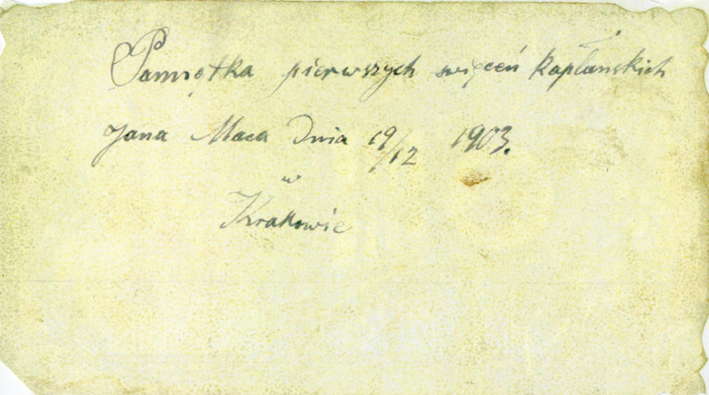 Pamiętka pierwszych święceń kapłańskich
Jana Maca Dnia 19/12 1903.
w
Krakowie